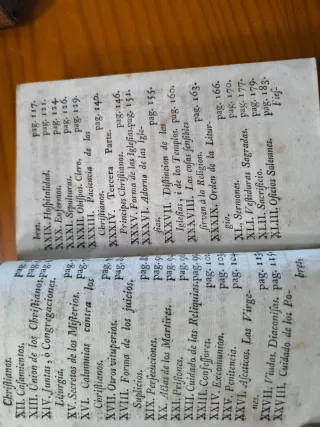 Christianos. pag.
XII. Casamientos. pag.
XIII. Union de los Christianos. pag.
XIV. Juntas, ò Congregaciones,
Liturgia. pag.
XV. Secretos de los Misterios. pag.
XVI. Calumnias contra los
Christianos. pag.
XVII. Otros vituperios. pag.
XVIII. Forma de los juicios,
Suplicios. pag.
XIX. Persecuciones. pag.
XX. Actas de los Martires. pag.
XXI. Prisiones. pag.
XXII. Cuidado de las Reliquias. pag.
XXIII. Confessores. pag.
XXIV. Excomunion. pag.
XXV. Penitencia. pag.
XXVI. Asceticos. Las Virge-
nes. pag. 113.
XXVII. Viudas, Diaconisas. pag. 115
XXVIII. Cuidado de los Po-
bres,
bres. pag. 117.
XXIX. Hospitalidad. pag. 121.
XXX. Enfermos. pag. 124.
XXXI. Sepulturas. pag. 126.
XXXII. Obispos. Clero. pag. 129.
XXXIII. Paciencia de los
Christianos. pag. 140.
XXXIV. Tercera Parte.
Principes Christianos. pag. 146.
XXXV. Forma de las Iglesias. pag. 151.
XXXVI. Adorno de las Igle-
sias. pag. 155.
XXXVII. Distincion de las
Iglesias, i de los Templos. pag. 160.
XXXVIII. Las cosas sensibles
sirven à la Religion. pag. 163.
XXXIX. Orden de la Litur-
gia. pag. 166.
XL. Sermones. pag. 170.
XLI. Vestiduras Sagradas. pag. 177.
XLII. Sacrificio. pag. 179.
XLIII. Oficios Solemnes. pag. 183.